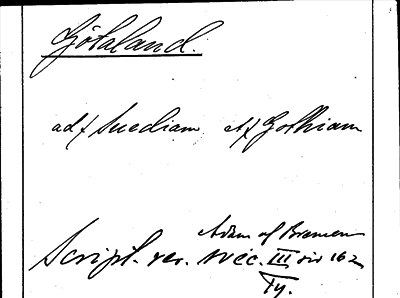 Götaland.
ad/ Suediam et/ Gothiam
Adam af Bremen
Script. rer. svec. III sid 162
Ty.